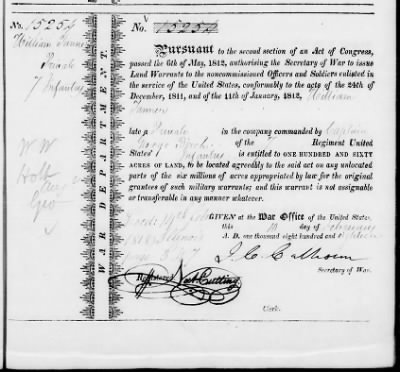 No. 15254
William Tanner
Private
7 Infantry
WAR DEPARTMENT.
No. 15254
Pursuant to the second section of an Act of Congress,
passed the 6th of May, 1812, authorising the Secretary of War to issue
Land Warrants to the noncommissioned Officers and Soldiers enlisted in
the service of the United States, conformably to the acts of the 24th of
December, 1811, and of the 11th of January, 1812, William
Tanner
late a Private in the company commanded by Captain
George of the 7 Regiment United
States' Infantry is entitled to ONE HUNDRED AND SIXTY
ACRES OF LAND, to be located agreeably to the said act on any unlocated
parts of the six millions of acres appropriated by law for the original
grantees of such military warrants; and this warrant is not assignable
or transferable in any manner whatever.
GIVEN at the War Office of the United States,
this 10 day of February
A. D. one thousand eight hundred and
J. C. Calhoun
Secretary of War.
Registered Cutting
Clerk.